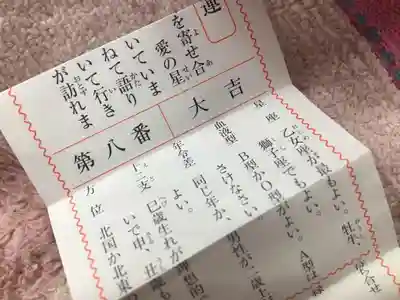 運
を寄せ合
愛の星
いていま
ねて語り
いて行き
が訪れま
第八番
大吉
星座
乙女座が最もよい。牡牛
獅子座でもよい。
血液型
B型かO型がよい。A型は
さけなさい
年令差
同じ年か、
よい。
十二支
巳歳生れが理想的
いで申、
方位
北国か北東の